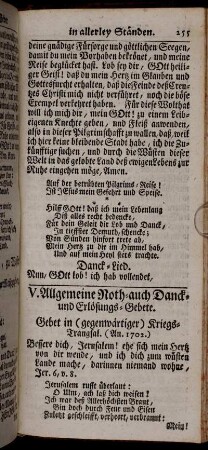 in allerley Ständen. 255
deine gnädige Fürsorge und göttlichen Seegen,
damit du mein Vorhaben bekrönet, und meine
Reise beglücket hast. Lob sey dir, GOtt heili-
ger Geist! daß du mein Hertz im Glauben und
Gottesfurcht erhalten, daß die Feinde des Creu-
tzes Christi mich nicht verführet, noch die böse
Exempel verkehret haben. Für diese Wolthat
will ich nicht nur dir, mein GOtt! zu einem Leib-
eigenen Knecht geben, und Fleiß anwenden,
also in dieser Pilgrimschafft zu wallen, daß, weil
ich hier keine bleibende Stadt habe, ich die Zu-
künfftige suchen, und durch die Wüsten dieser
Welt in das gelobte Land deß ewigen Lebens zur
Ruhe eingehen möge, Amen.
Auf der betrübten Pilgrims-Reise!
Ist JEsus mein Gefehrt und Speise.
*
Hilff GOtt! daß ich mein Lebenlang
Diß alles recht bedencke,
Für dein Geleit dir Lob und Danck,
In tieffster Demuth, schencke;
Von Sünden hinfort trete ab,
Mein Hertz zu dir im Himmel hab,
Und auf mein Heyl stets trachte.
Danck-Lied.
Nun, GOtt lob! ich hab vollendet,
V. Allgemeine Noth- auch Danck-
und Erlösungs-Gebete.
Gebet in (gegenwärtiger) Kriegs-
Trangsal. (An. 1702.)
Bessere dich, Jerusalem! ehe sich mein Hertz
von dir wende, und ich dich zum wüsten
Lande mache, darinnen niemand wohne,
Jer. 6, v. 8.
Jerusalem ruffe überlaut:
O Ulm, ach laß dich weisen!
Ich war deß Allerhöchsten Braut,
Bin doch durch Feur und Eisen
Zuletzt geschleifft, verheert, verbrannt:
Mein!